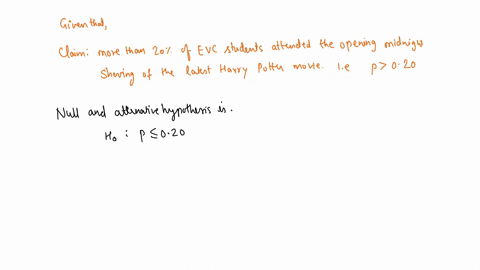 Given that,
Claim: more than 20% of EVC students attended the opening midnight
Showing of the latest Harry Potter movie. I.e p > 0.20
Null and alternative hypothesis is.
H₀ : p ≤ 0.20